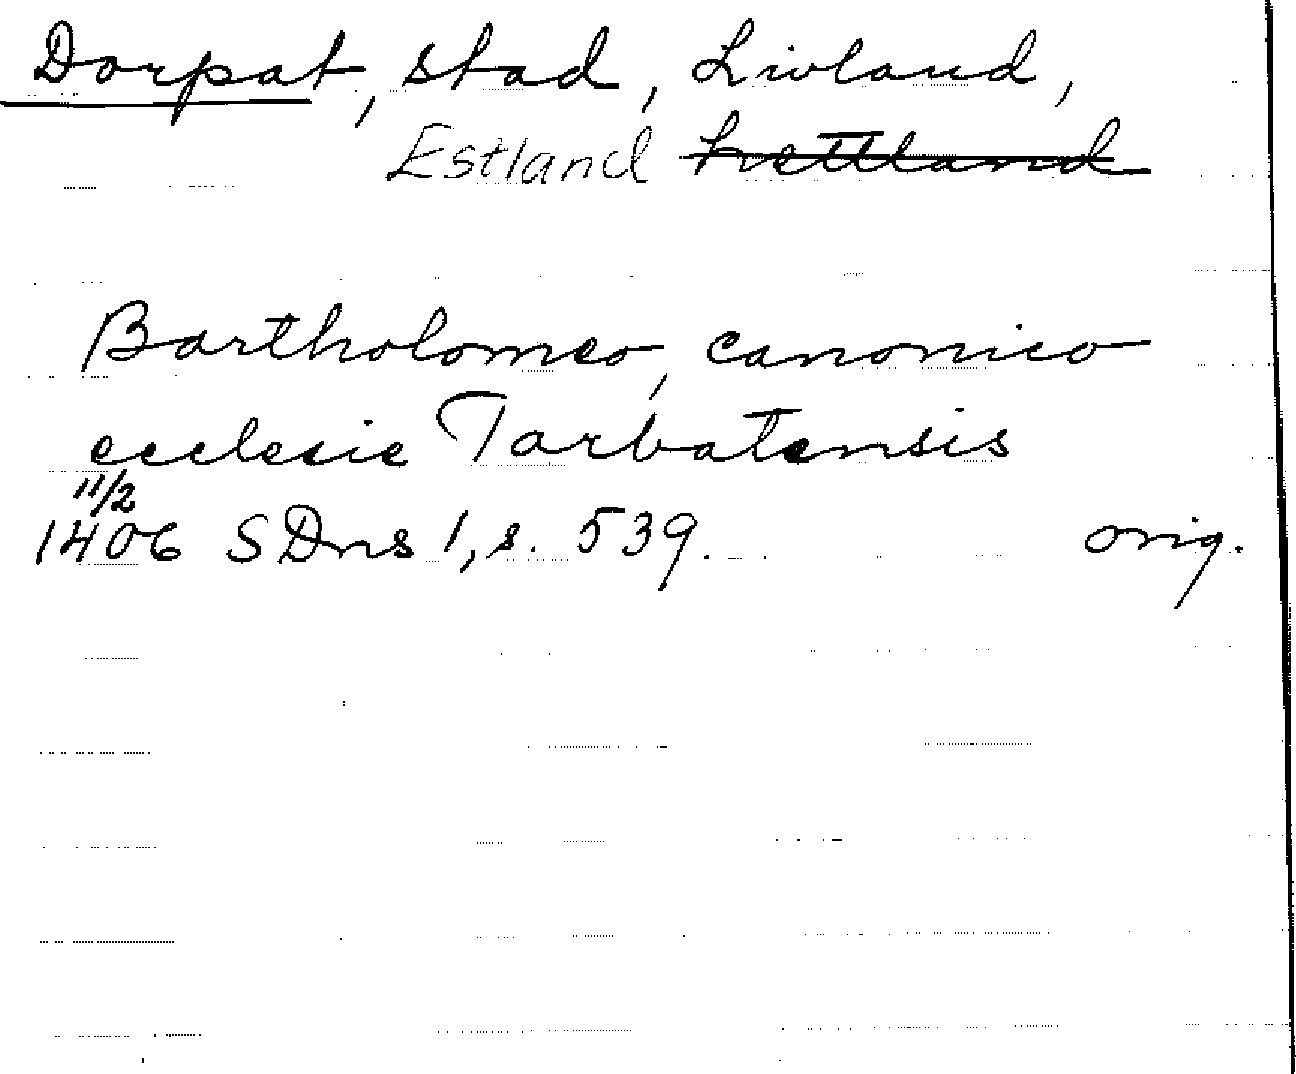 Dorpat, stad, Livland,
Estland Lettland
Bartholomeo, canonico
ecclesie Tarbatensis
11/2
1406 SDns 1, s. 539. orig.